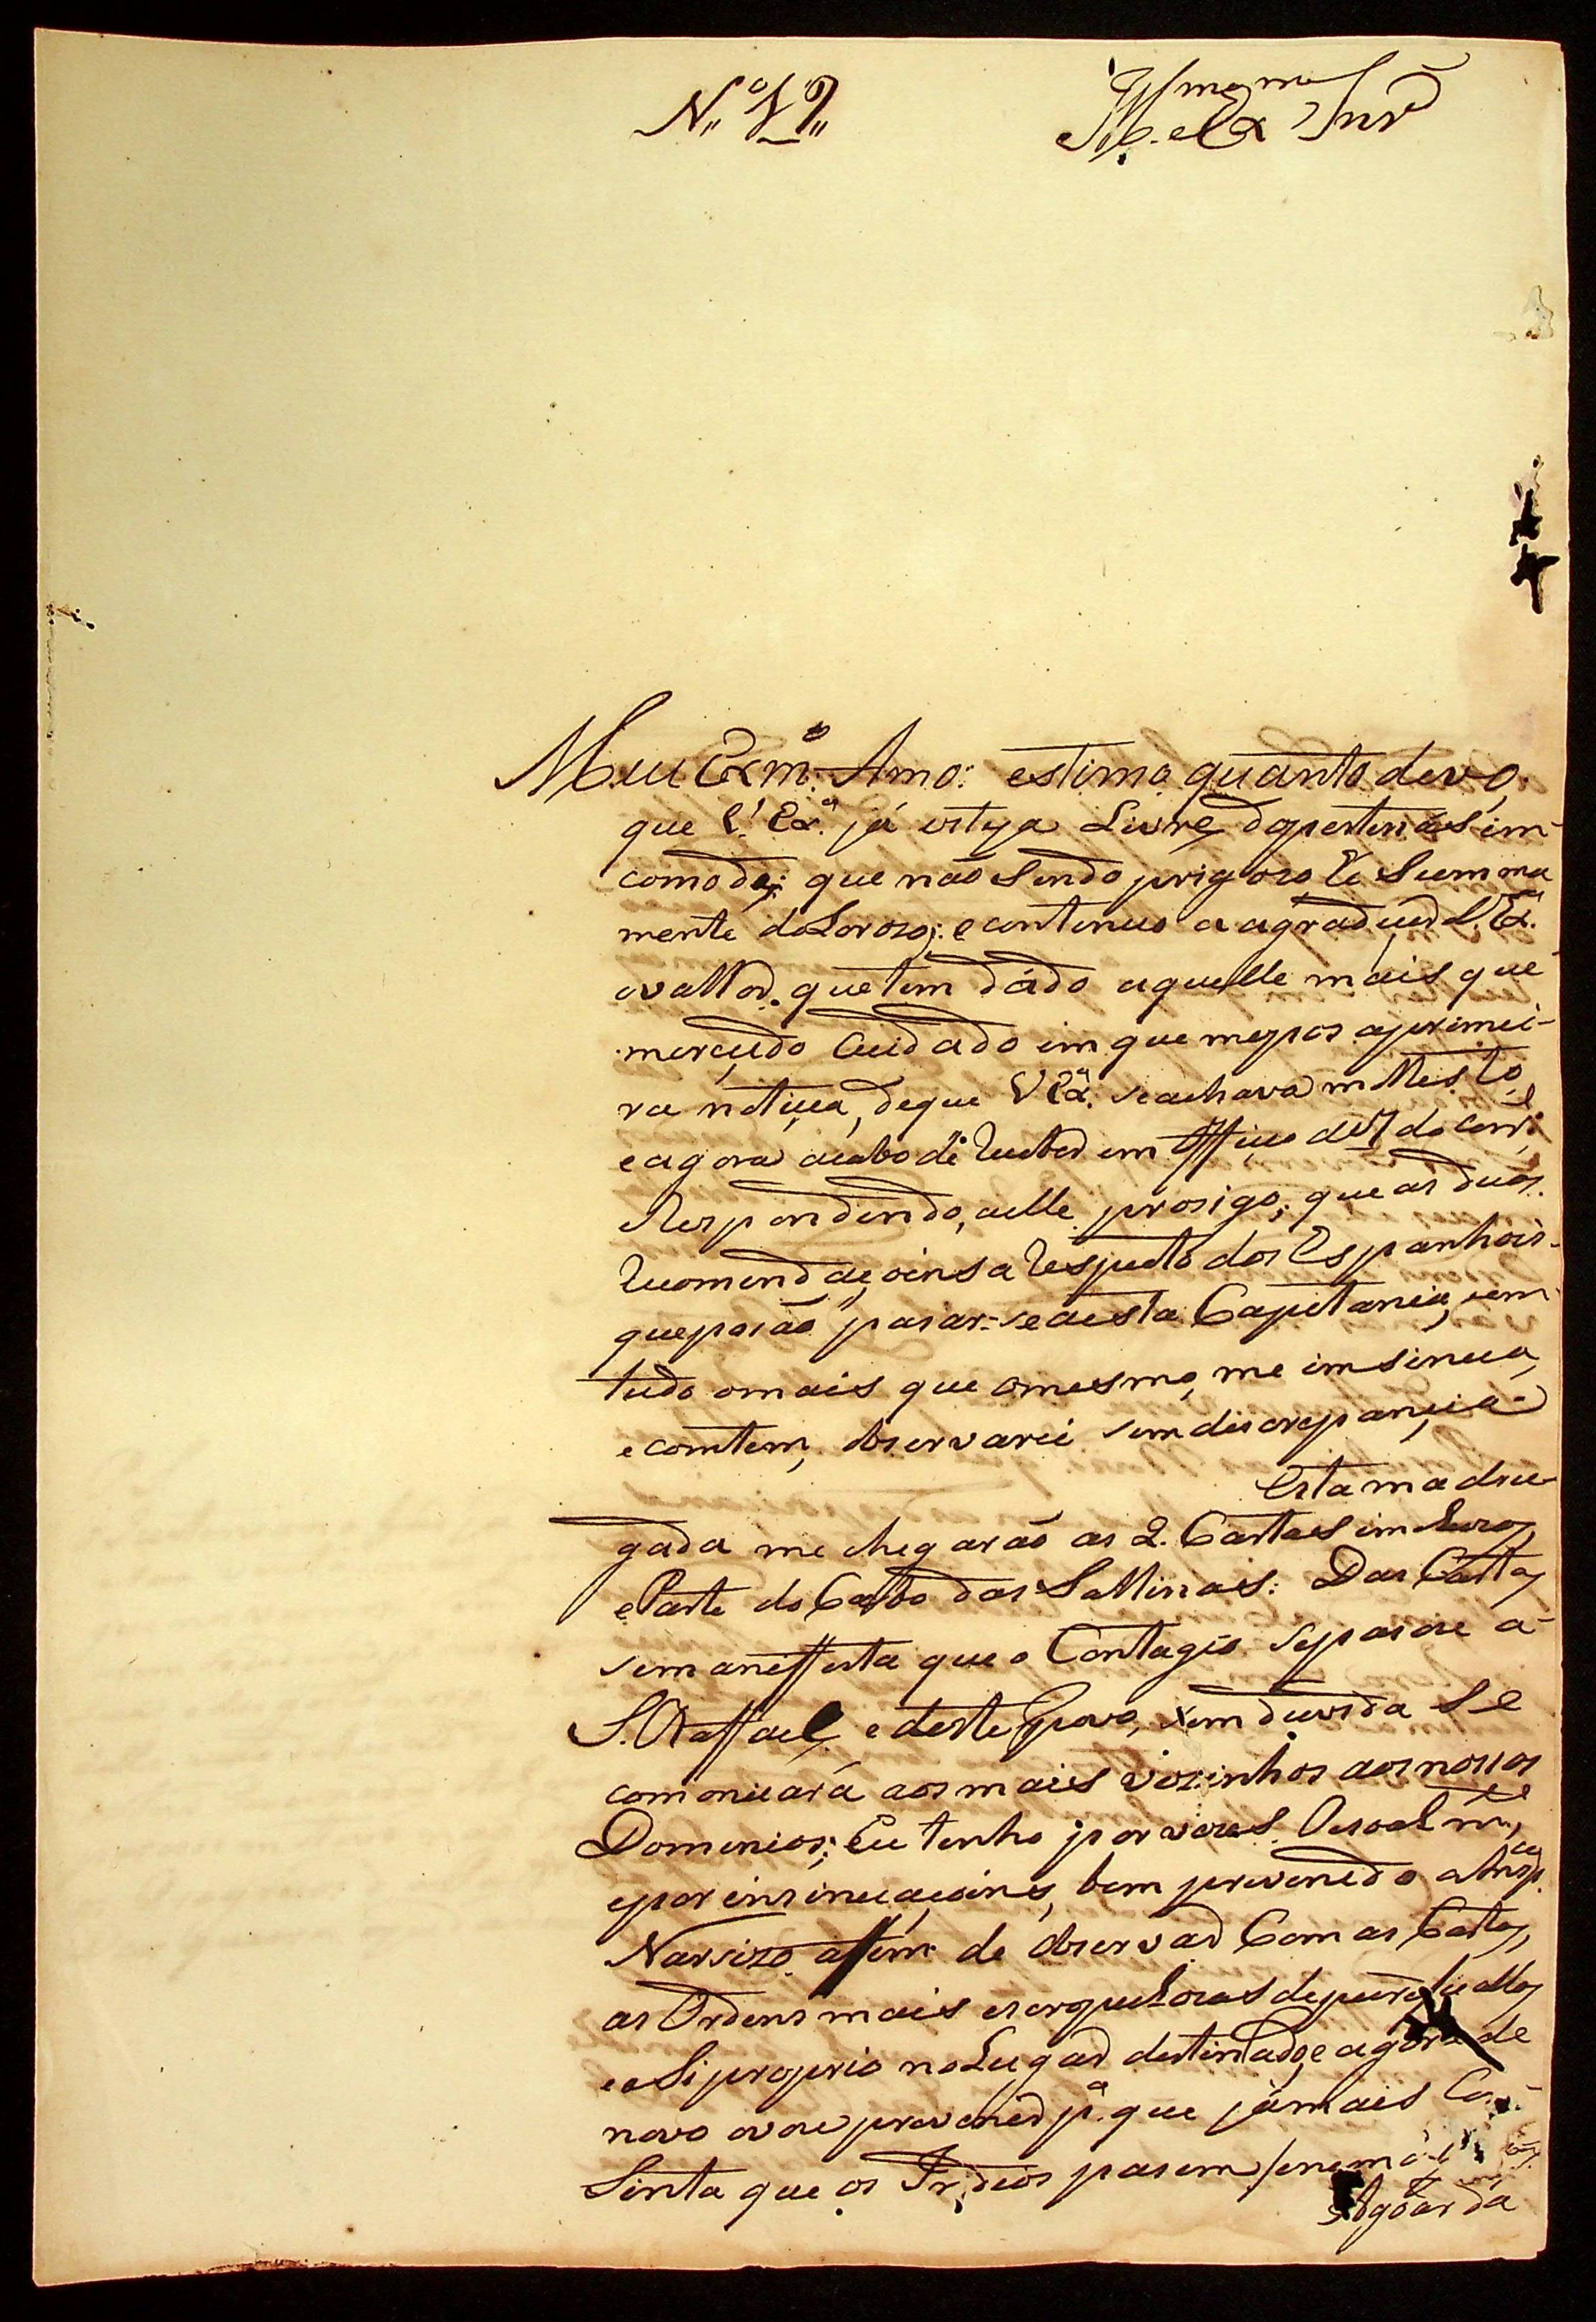 Illmo e Exmo Snr
Meu Exmo Amo: estimo quanto devo,
que V. Exa já esteja Livre do pertinás im-
comodo; que não Sendo prigozo, hé Summa
mente doLorozo; e continuo a agradecer V. Exa
o vallor, que tem dádo aquelle mais que
merecido Cuidado, em que me pos a primei-
ra noticia, de que V Exa se achava mollesto,
e agora acabo de receber um Officio de 7 do corre
Respondendo, a elle prosigo; que as duas
recomendaçoins a respeito dos Espanhois
que posão pasar-se a esta Capitania, em
tudo o mais que o mesmo, me imsinua,
e comtem, observarei sem discrepancia.
Esta madru-
gada me chegarão as 2. Cartas
e Parte do Cabo das Sallinas: Das Cartas
se maniffesta que o Contagio se pasase a
S. Raffael, e deste Povo, sem duvida Se
comonicará aos mais vizinhos aos nossos
Dominios; Eu tenho por vezes Vocalme,
e por insinuaçoins, bem prevenido a
Narsizo affim de observar Com as Cartas,
as Ordens mais escropulozas de
e a Si proprio no Lugar destinado, e agora de
novo o vou prevenir pa que jámais Con-
Sinta que os Indios pasem